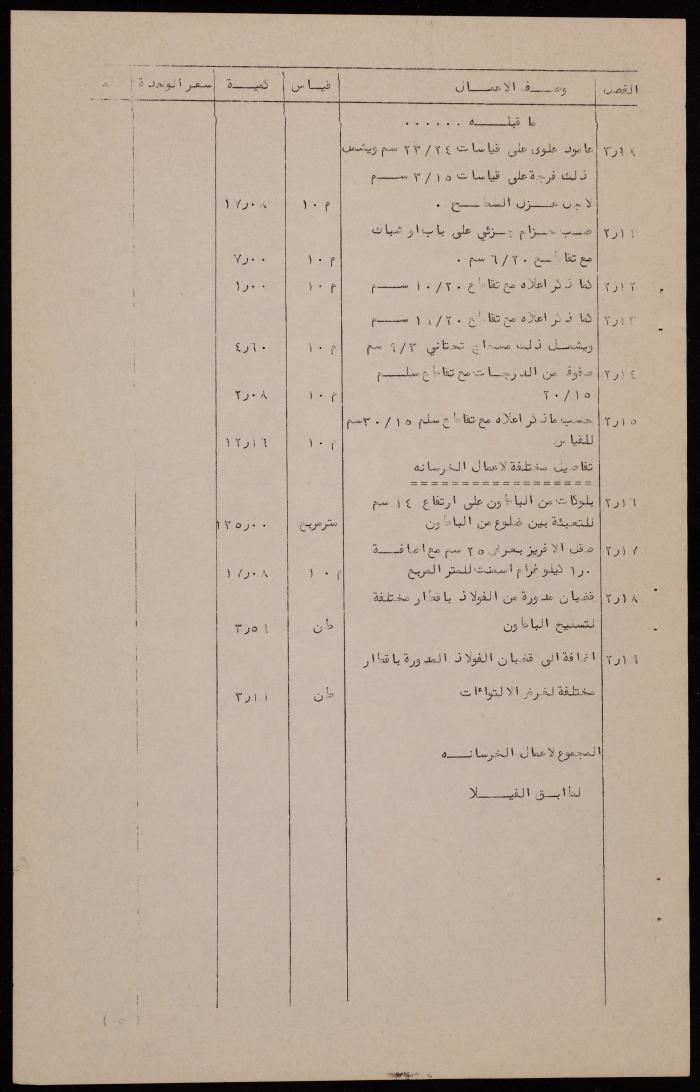 الفصل وصف الاعمال قياس كمية سعر الوحدة
ما قبله . . . . . .
عامود علوي على قياسات ٢٣/٢٤ سم ويشمل
ذلك فرجة على قياسات ٣/١٥ سم
لاجل عزل السطح . م ١٠ ١٧ر٠٨
٢ر١١ صب حزام جزئي على باب او شباك
مع تقاطع ٦/٢٠ سم . م ١٠ ٧ر٠٠
٢ر١٢ كما ذكر اعلاه مع تقاطع ١٠/٢٠ سم م ١٠ ١ر٠٠
٢ر١٣ كما ذكر اعلاه مع تقاطع ١١/٢٠ سم
ويشمل ذلك مسطاح تحتاني ٩/٣ سم م ١٠ ٤ر٦٠
٢ر١٤ صفوف من الدرجات مع تقاطع سلم
٢٠/١٥ م ١٠ ٢ر٠٨
٢ر١٥ حسب ما ذكر اعلاه مع تقاطع سلم ٣٠/١٥ سم
للقياس م ١٠ ١٢ر١٦
تفاصيل مختلفة لاعمال الخرسانه
==================
٢ر١٦ بلوكات من الباطون على ارتفاع ١٤ سم
للتعبئة بين ضلوع من الباطون مترمربع ١٣٥ر٠٠
٢ر١٧ صقل الافريز بعرض ٢٥ سم مع اضافة
١ر٠ كيلو غرام اسمنت للمتر المربع م ١٠ ١٧ر٠٨
٢ر١٨ قضبان مدورة من الفولاذ باقطار مختلفة
لتسليح الباطون طن ٣ر٥٦
٢ر١٩ اضافة الى قضبان الفولاذ المدورة باقطار
مختلفة لغرض الالتواءات طن ٣ر١١
المجموع لاعمال الخرسانه
لطابق الفيلا
( ٥ )